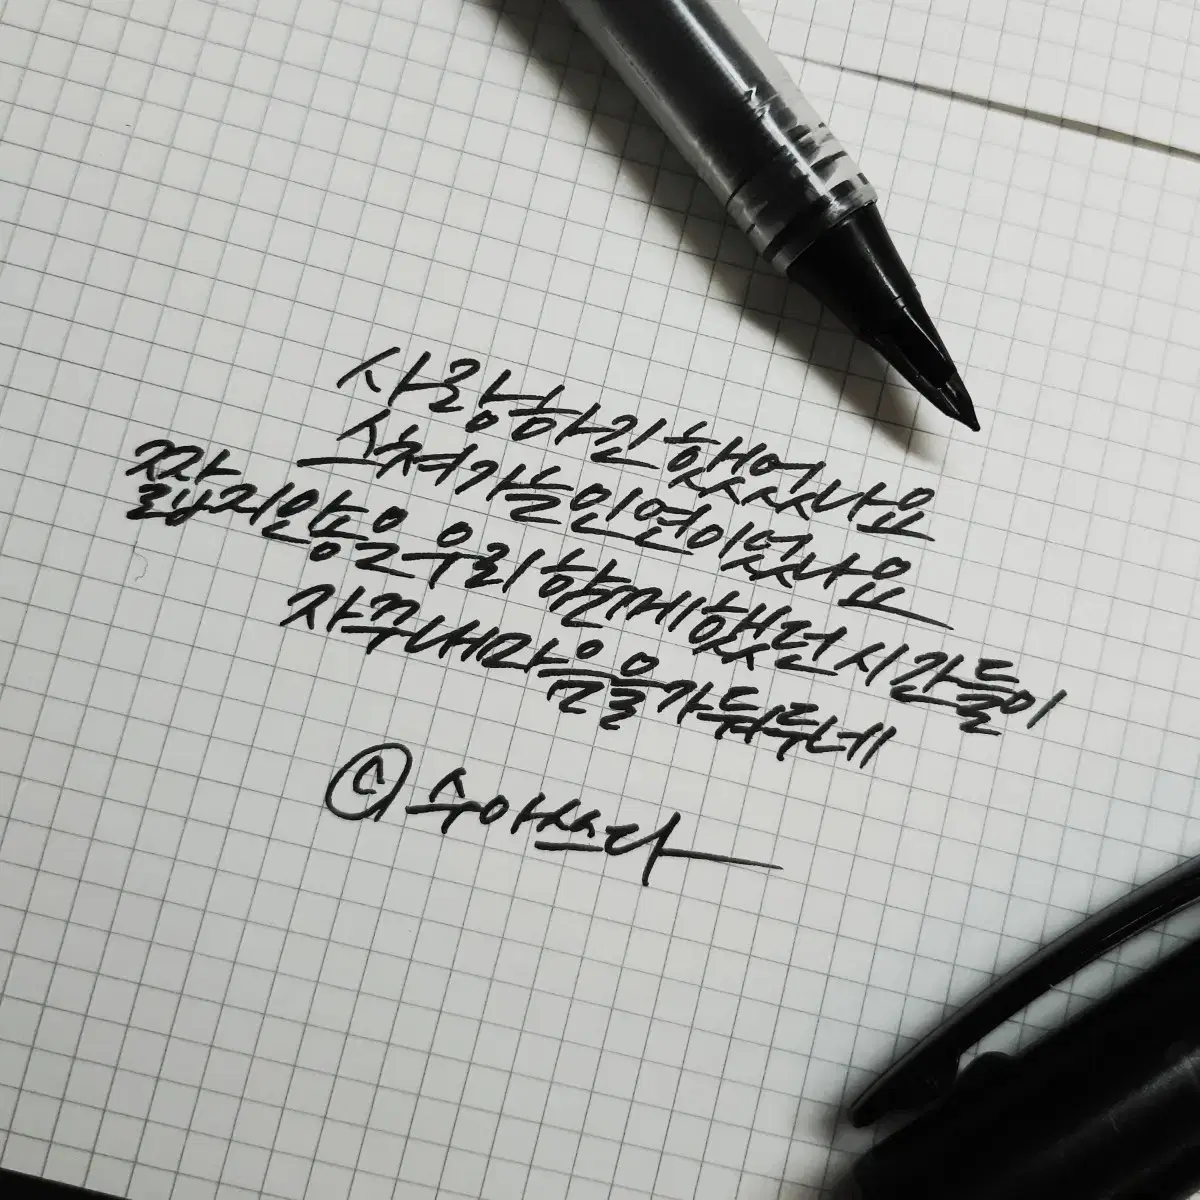 사랑하긴 했었나요
스쳐가는 인연이었나요
짧지 않은 우리 함께 했던 시간들이
자꾸 내 마음을 가둬두네
ⓒ 수아쓰다